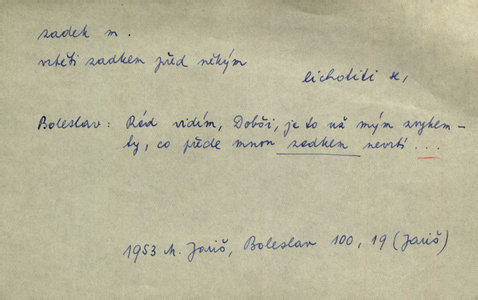 zadek m.
vrtěti zadkem před někým
lichotiti se,
Boleslav: Rád vidím, Dobši, je to už mým zvykem –
ty, co přede mnou zadkem nevrtí ...
1953 M. Jariš, Boleslav 100, 19 (Jariš)